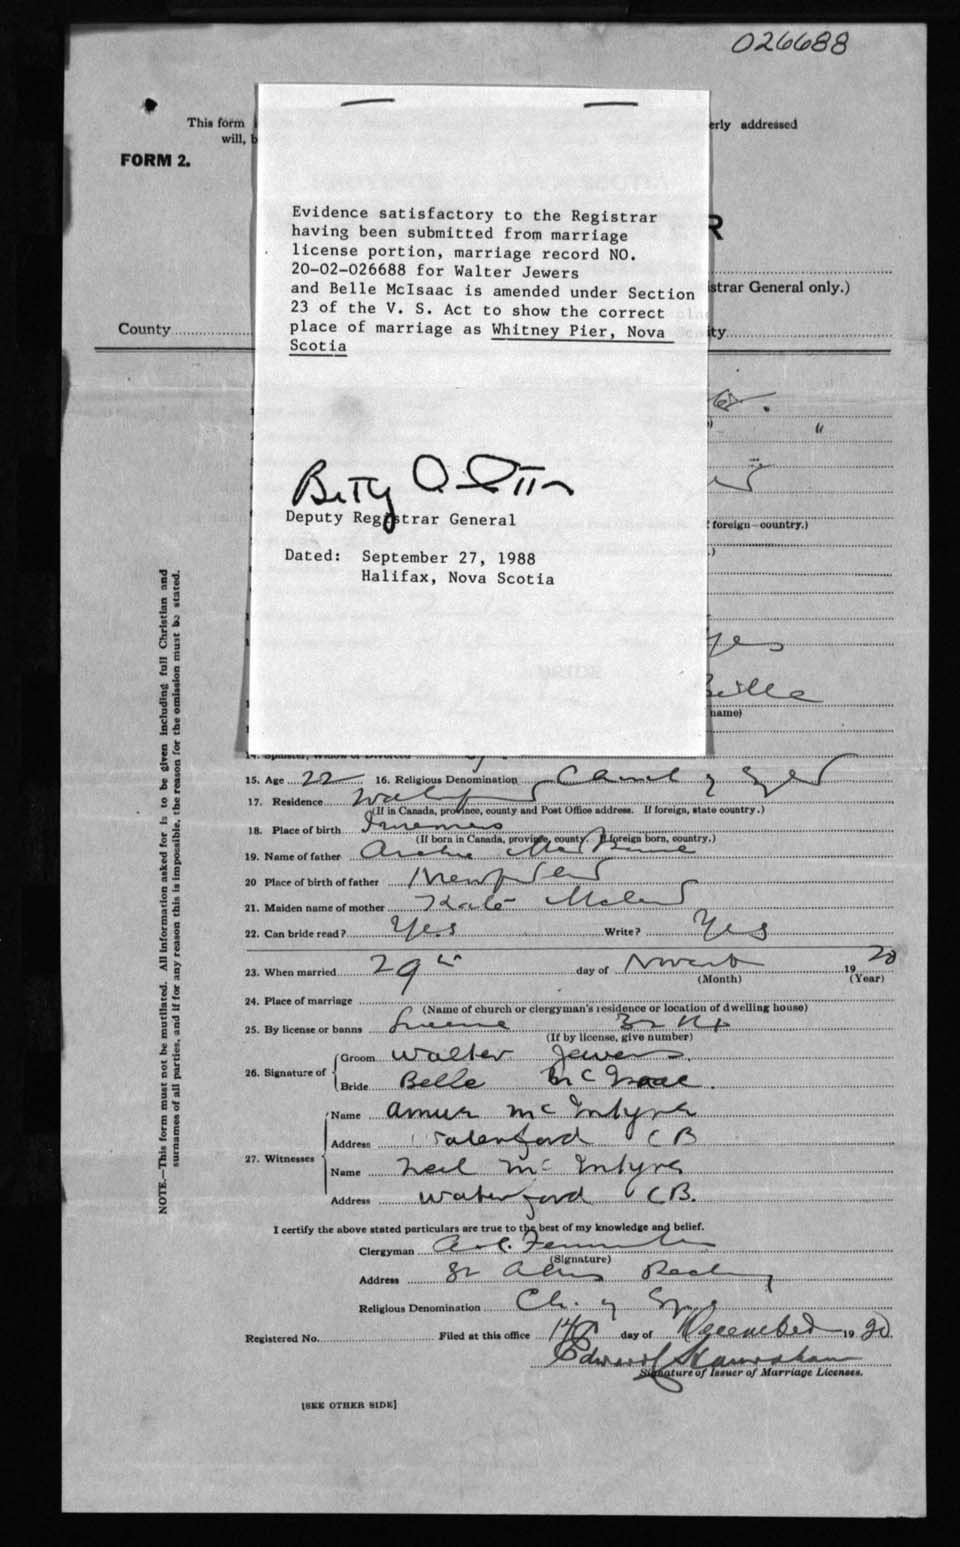 026688
This form
erly addressed
will, b
FORM 2.
R
Evidence satisfactory to the Registrar
having been submitted from marriage
license portion, marriage record NO.
20-02-026688 for Walter Jewers
and Belle McIsaac is amended under Section
23 of the V. S. Act to show the correct
place of marriage as Whitney Pier, Nova
Scotia
strar General only.)
County
ty
"
Betty
Deputy Registrar General
foreign country.)
Dated: September 27, 1988
Halifax, Nova Scotia
Yes
Belle
name)
NOTE.—This form must not be mutilated. All information asked for is to be given including full Christian and
surnames of all parties, and if for any reason this is impossible, the reason for the omission must be stated.
14. Spinster, Widow or Divorced
15. Age 22 16. Religious Denomination Church of Eng
17. Residence
(If in Canada, province, county and Post Office address. If foreign, state country.)
18. Place of birth
(If born in Canada, province, county. If foreign born, country.)
19. Name of father Archie
20 Place of birth of father
21. Maiden name of mother Kate
22. Can bride read? Yes Write? Yes
23. When married 29th day of Novemb 1920
(Month) (Year)
24. Place of marriage
(Name of church or clergyman's residence or location of dwelling house)
25. By license or banns
(If by license, give number)
26. Signature of Groom Walter Jewers
Bride Belle McIsaac
27. Witnesses Name McIntyre
Address Waterford CB
Name Neil McIntyre
Address Waterford CB.
I certify the above stated particulars are true to the best of my knowledge and belief.
Clergyman
(Signature)
Address
Religious Denomination Ch. of Eng
Registered No. Filed at this office 14th day of December 1920
Edward
Signature of Issuer of Marriage Licenses.
[SEE OTHER SIDE]